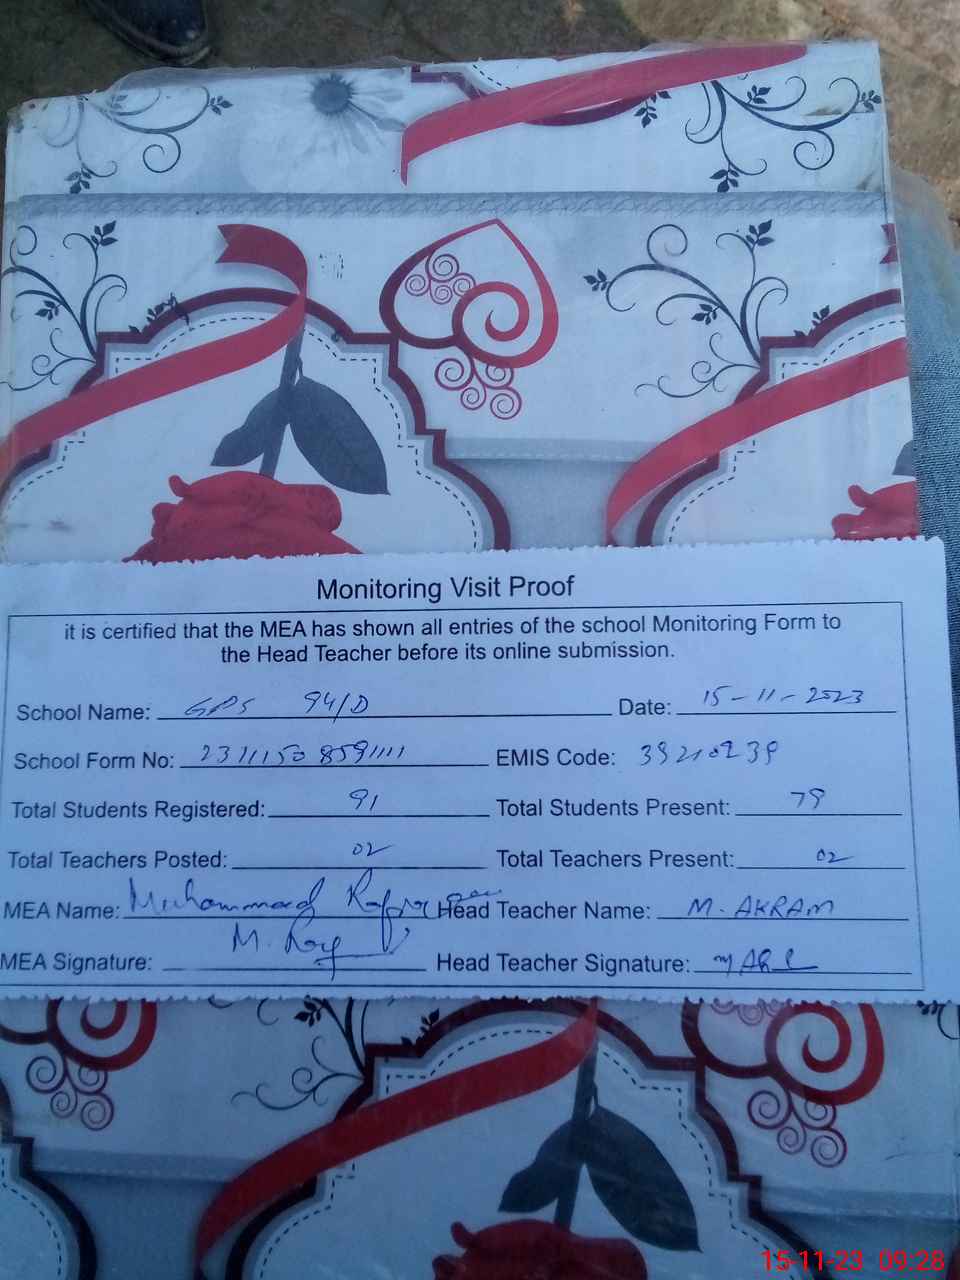 Monitoring Visit Proof
it is certified that the MEA has shown all entries of the school Monitoring Form to
the Head Teacher before its online submission.
School Name: GPS 94/D Date: 15-11-2023
School Form No: 2311150 8591111 EMIS Code: 39210239
Total Students Registered: 91 Total Students Present: 79
Total Teachers Posted: 02 Total Teachers Present: 02
MEA Name: Muhammad Head Teacher Name: M. AKRAM
MEA Signature: Head Teacher Signature:
15-11-23 09:28